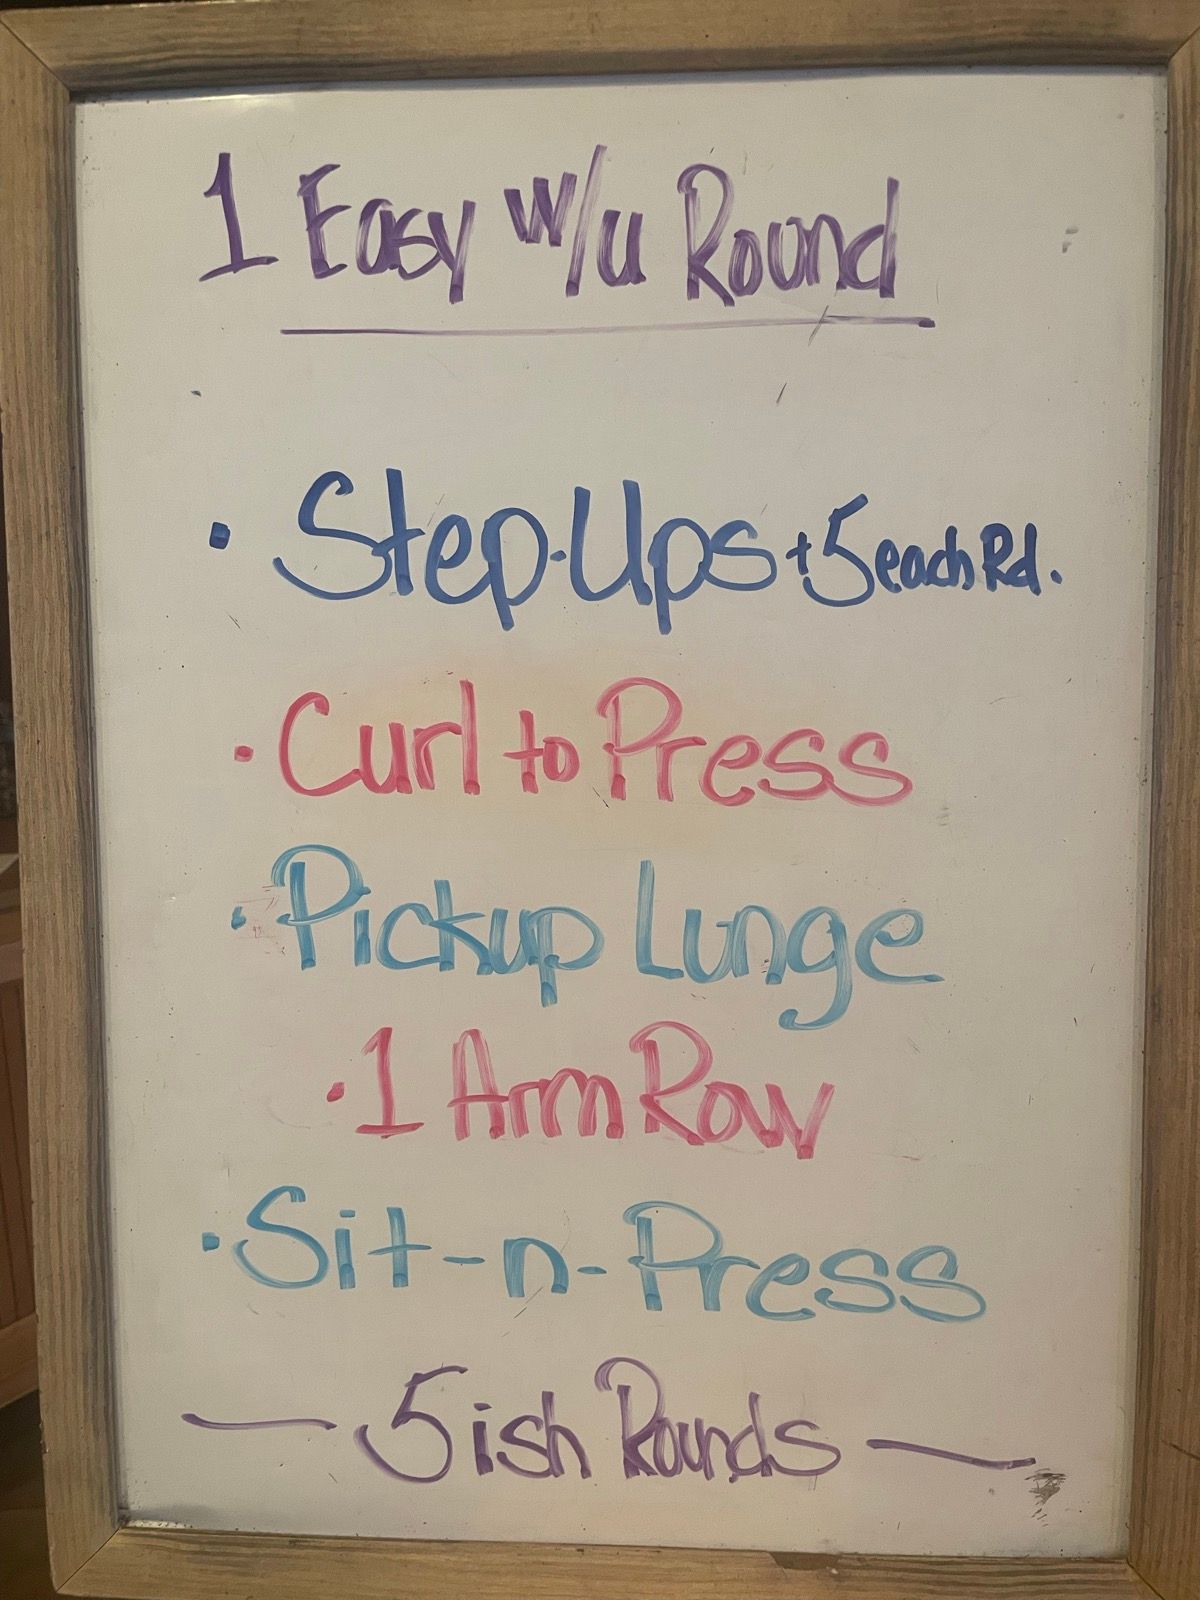 1 Easy w/u Round
• Step-Ups +5 each Rd.
• Curl to Press
• Pickup Lunge
• 1 Arm Row
• Sit-n-Press
— 5ish Rounds —